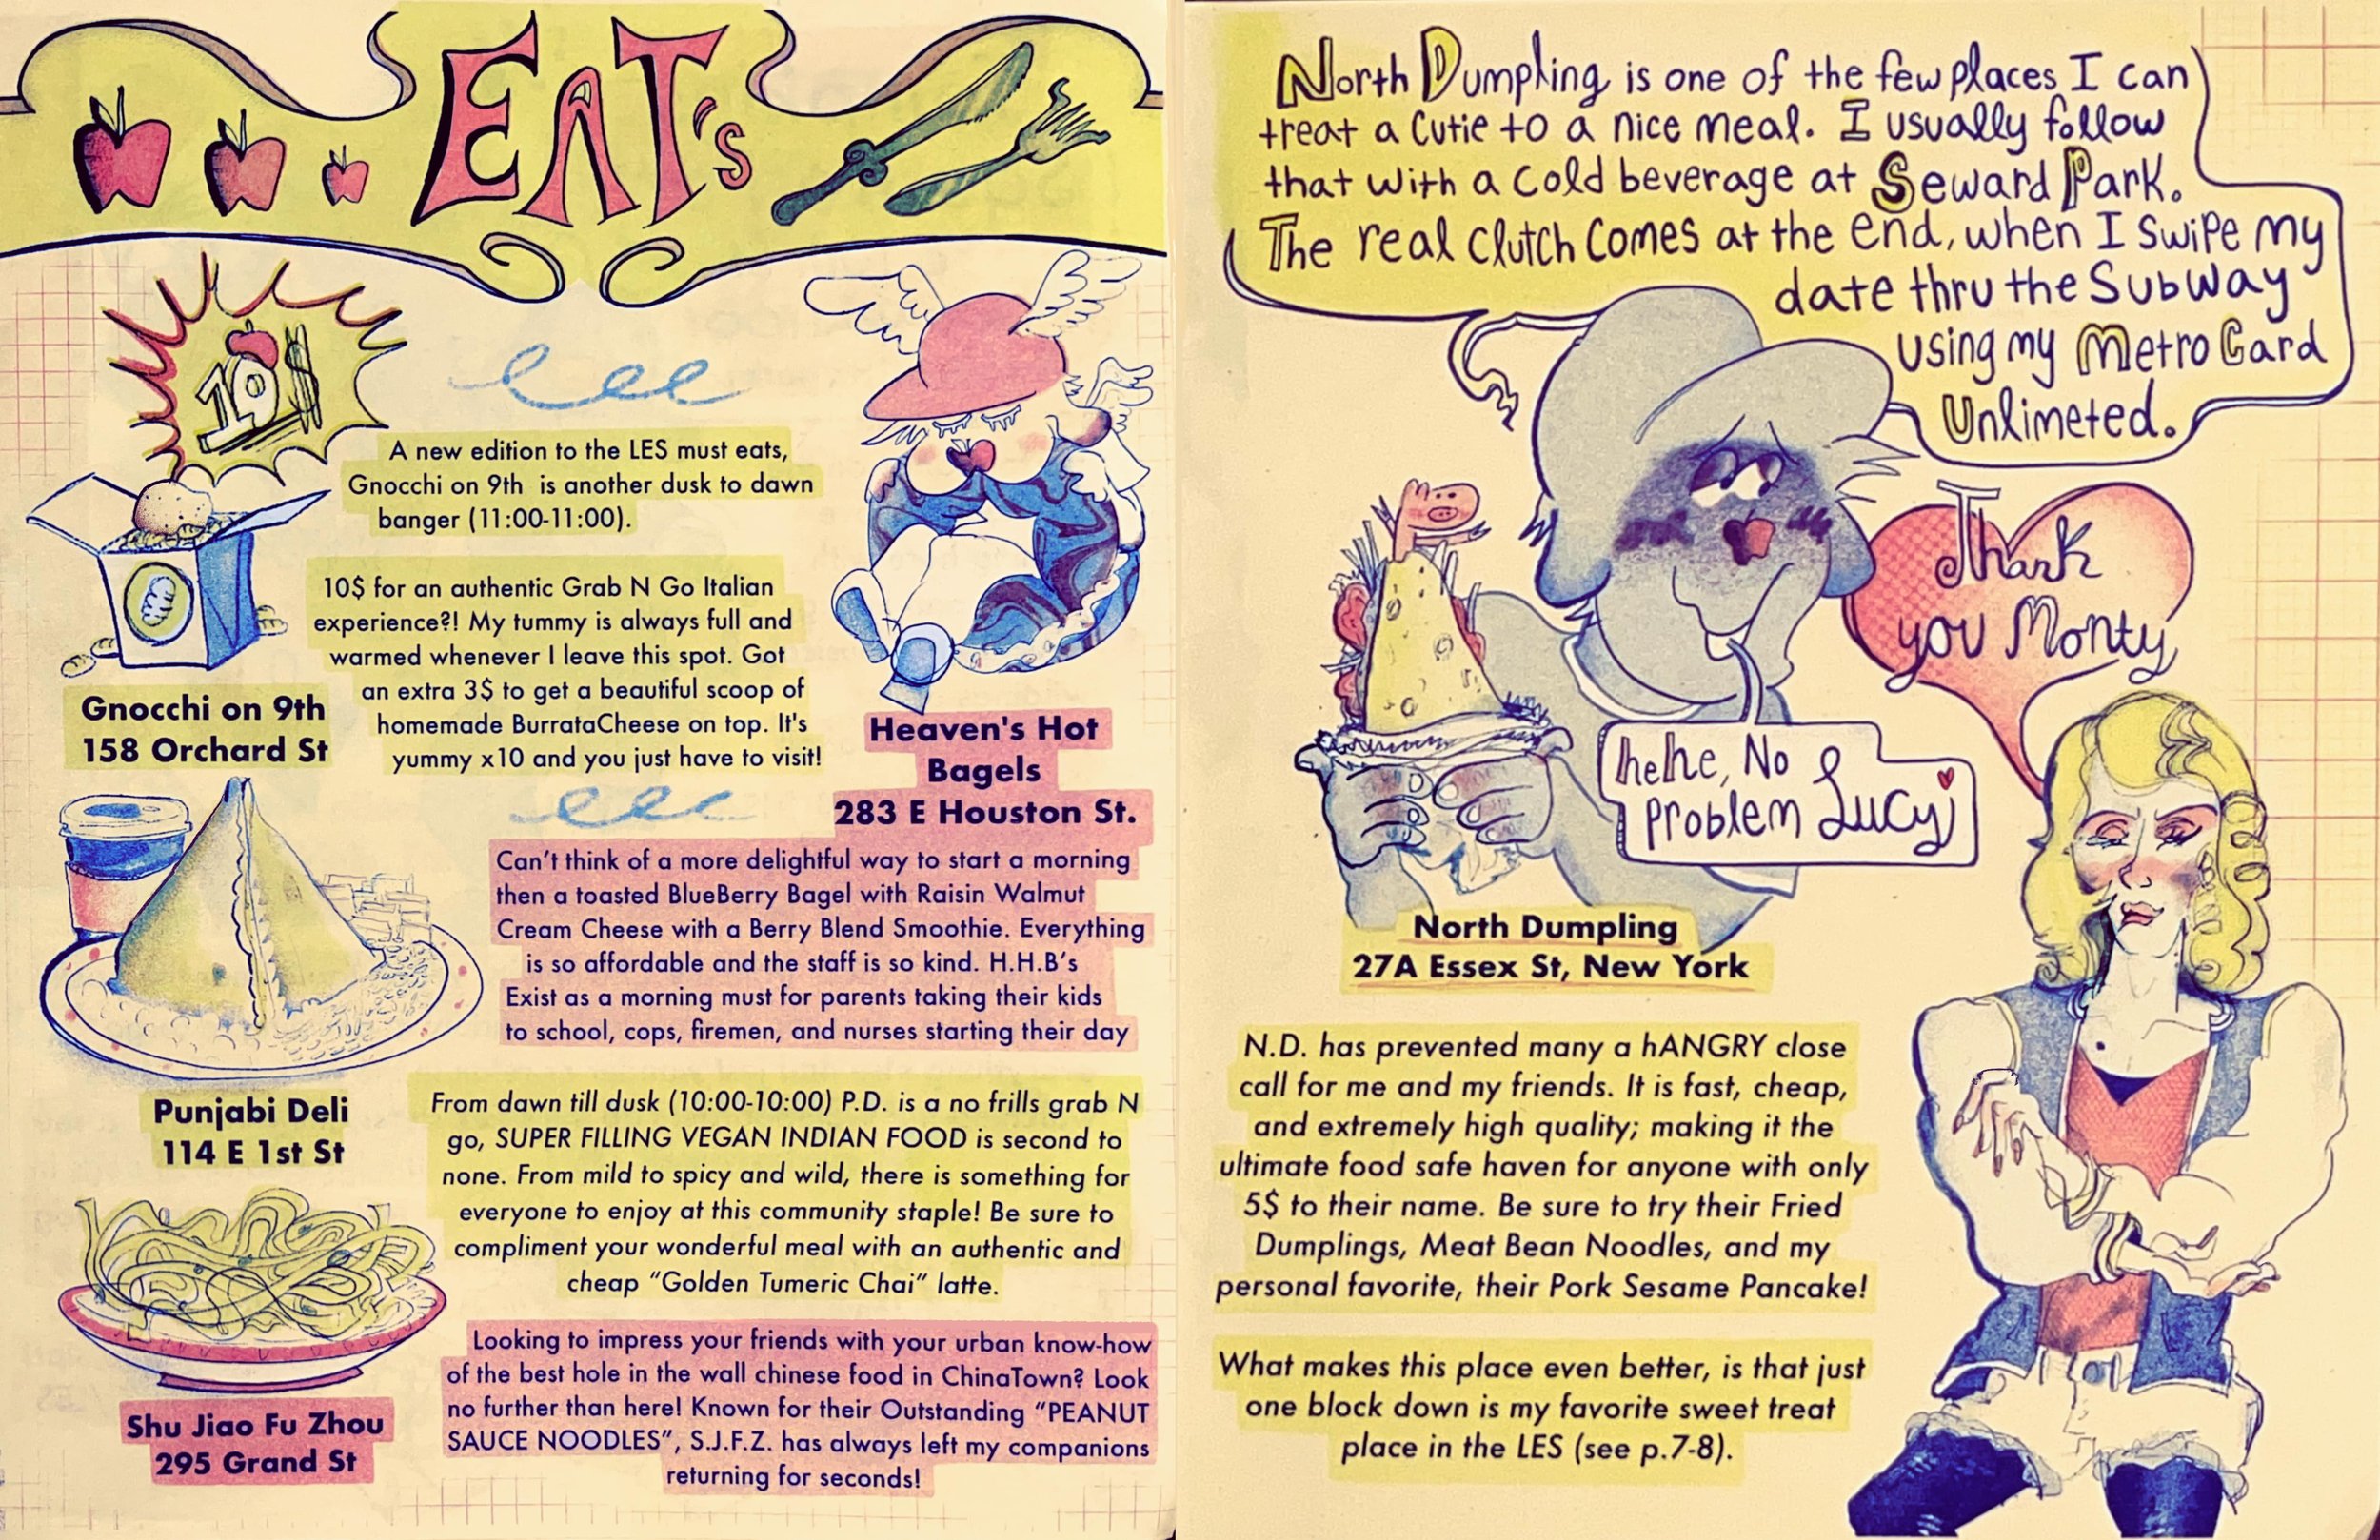 EAT's
10$
A new edition to the LES must eats,
Gnocchi on 9th is another dusk to dawn
banger (11:00-11:00).
10$ for an authentic Grab N Go Italian
experience?! My tummy is always full and
warmed whenever I leave this spot. Got
an extra 3$ to get a beautiful scoop of
homemade BurrataCheese on top. It's
yummy x10 and you just have to visit!
Gnocchi on 9th
158 Orchard St
Heaven's Hot
Bagels
283 E Houston St.
Can't think of a more delightful way to start a morning
then a toasted BlueBerry Bagel with Raisin Walmut
Cream Cheese with a Berry Blend Smoothie. Everything
is so affordable and the staff is so kind. H.H.B's
Exist as a morning must for parents taking their kids
to school, cops, firemen, and nurses starting their day
Punjabi Deli
114 E 1st St
From dawn till dusk (10:00-10:00) P.D. is a no frills grab N
go, SUPER FILLING VEGAN INDIAN FOOD is second to
none. From mild to spicy and wild, there is something for
everyone to enjoy at this community staple! Be sure to
compliment your wonderful meal with an authentic and
cheap "Golden Tumeric Chai" latte.
Shu Jiao Fu Zhou
295 Grand St
Looking to impress your friends with your urban know-how
of the best hole in the wall chinese food in ChinaTown? Look
no further than here! Known for their Outstanding "PEANUT
SAUCE NOODLES", S.J.F.Z. has always left my companions
returning for seconds!
North Dumpling is one of the few places I can
treat a cutie to a nice meal. I usually follow
that with a cold beverage at Seward Park.
The real clutch comes at the end, when I swipe my
date thru the Subway
using my Metro Card
Unlimeted.
Thank
you Monty
hehe, No
problem Lucy
North Dumpling
27A Essex St, New York
N.D. has prevented many a hANGRY close
call for me and my friends. It is fast, cheap,
and extremely high quality; making it the
ultimate food safe haven for anyone with only
5$ to their name. Be sure to try their Fried
Dumplings, Meat Bean Noodles, and my
personal favorite, their Pork Sesame Pancake!
What makes this place even better, is that just
one block down is my favorite sweet treat
place in the LES (see p.7-8).